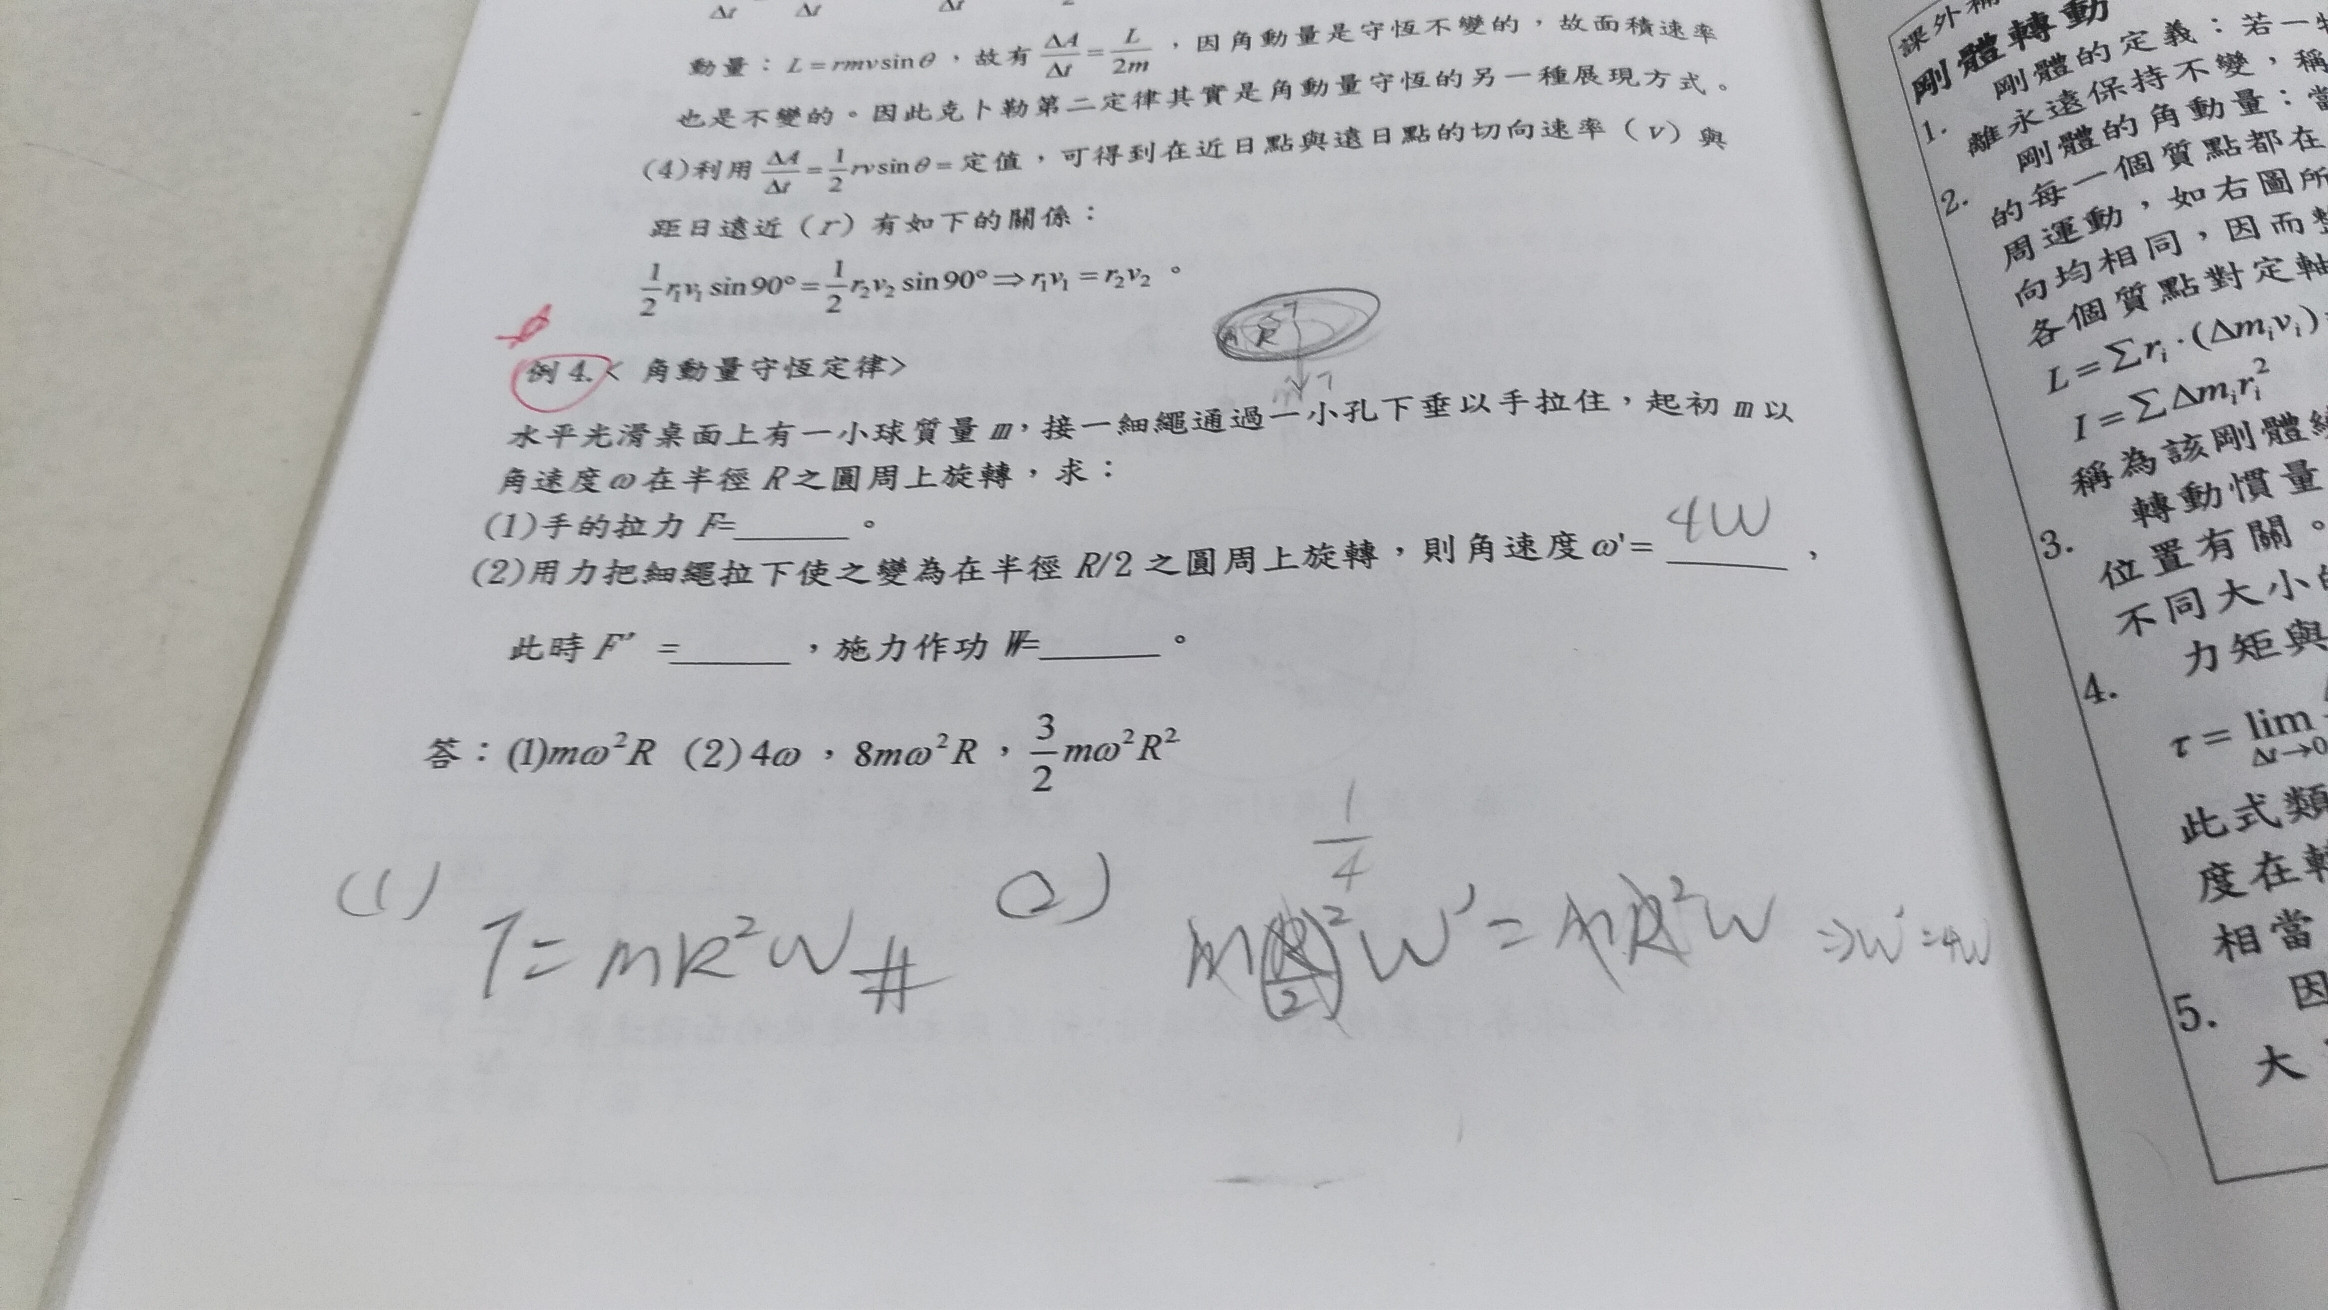 動量：L=rmvsinθ，故有 ΔA/Δt = L/2m ，因角動量是守恆不變的，故面積速率
也是不變的。因此克卜勒第二定律其實是角動量守恆的另一種展現方式。
(4)利用 ΔA/Δt = 1/2 rvsinθ=定值，可得到在近日點與遠日點的切向速率（v）與
距日遠近（r）有如下的關係：
1/2 r₁v₁ sin90°= 1/2 r₂v₂ sin90°⇒r₁v₁ =r₂v₂ 。
R
例4.< 角動量守恆定律>
水平光滑桌面上有一小球質量m，接一細繩通過一小孔下垂以手拉住，起初m以
角速度ω在半徑R之圓周上旋轉，求：
(1)手的拉力F=______。
(2)用力把細繩拉下使之變為在半徑R/2之圓周上旋轉，則角速度ω'= 4W ，
此時F' =______，施力作功W=______。
答：(1)mω²R (2)4ω，8mω²R，3/2 mω²R²
(1) T=mR²W # (2) m(R/2)²W'=mR²W ⇒W'=4W
1/4
課外補
剛體轉動
1. 剛體的定義：若一
離永遠保持不變，稱
2. 剛體的角動量：當
的每一個質點都在
周運動，如右圖所
向均相同，因而整
各個質點對定軸
L=Σrᵢ·(Δmᵢvᵢ)
I=ΣΔmᵢrᵢ²
稱為該剛體繞
3. 轉動慣量
位置有關。
不同大小的
4. 力矩與
τ=lim Δt→0
此式類
度在轉
相當
5. 因
大